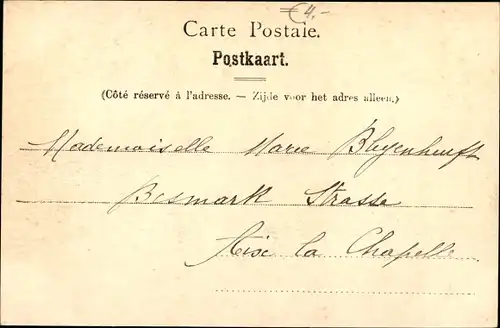 €4,-
Carte Postale.
Postkaart.
(Côté réservé à l'adresse. — Zijde voor het adres alleen.)
Mademoiselle Marie
Bismark Strasse
Aix la Chapelle